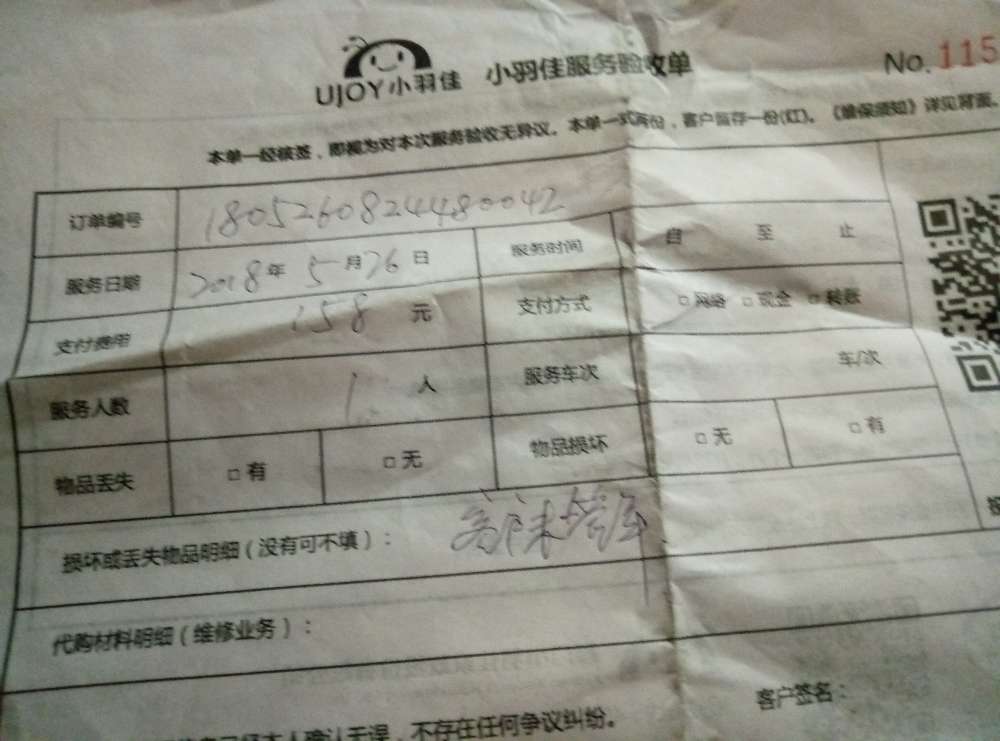 UJOY小羽佳 小羽佳服务验收单 No.115
本单一经核签，即视为对本次服务验收无异议。本单一式两份，客户留存一份(红)。《维保须知》详见背面。
订单编号 18052608244480042
服务日期 2018年5月26日 服务时间 自 至 止
支付费用 158元 支付方式 □网络 □现金 □转账
服务人数 1人 服务车次 车/次
物品丢失 □有 □无 物品损坏 □无 □有
损坏或丢失物品明细（没有可不填）：
代购材料明细（维修业务）：
客户签名：
本人确认无误，不存在任何争议纠纷。